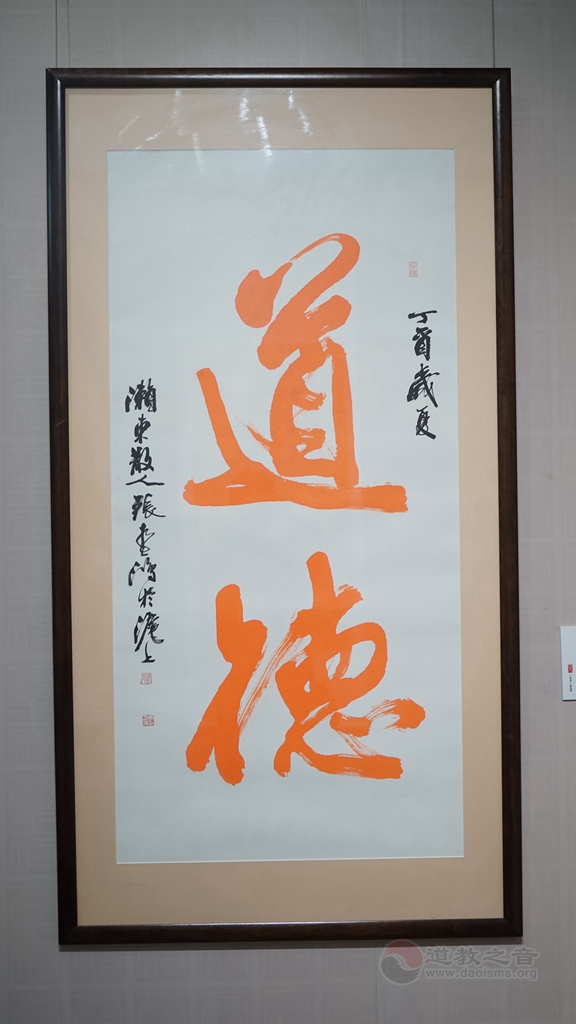 丁酉歲夏
道德
瀨東散人張壺鴻於滬上
道教之音
www.daoisms.org